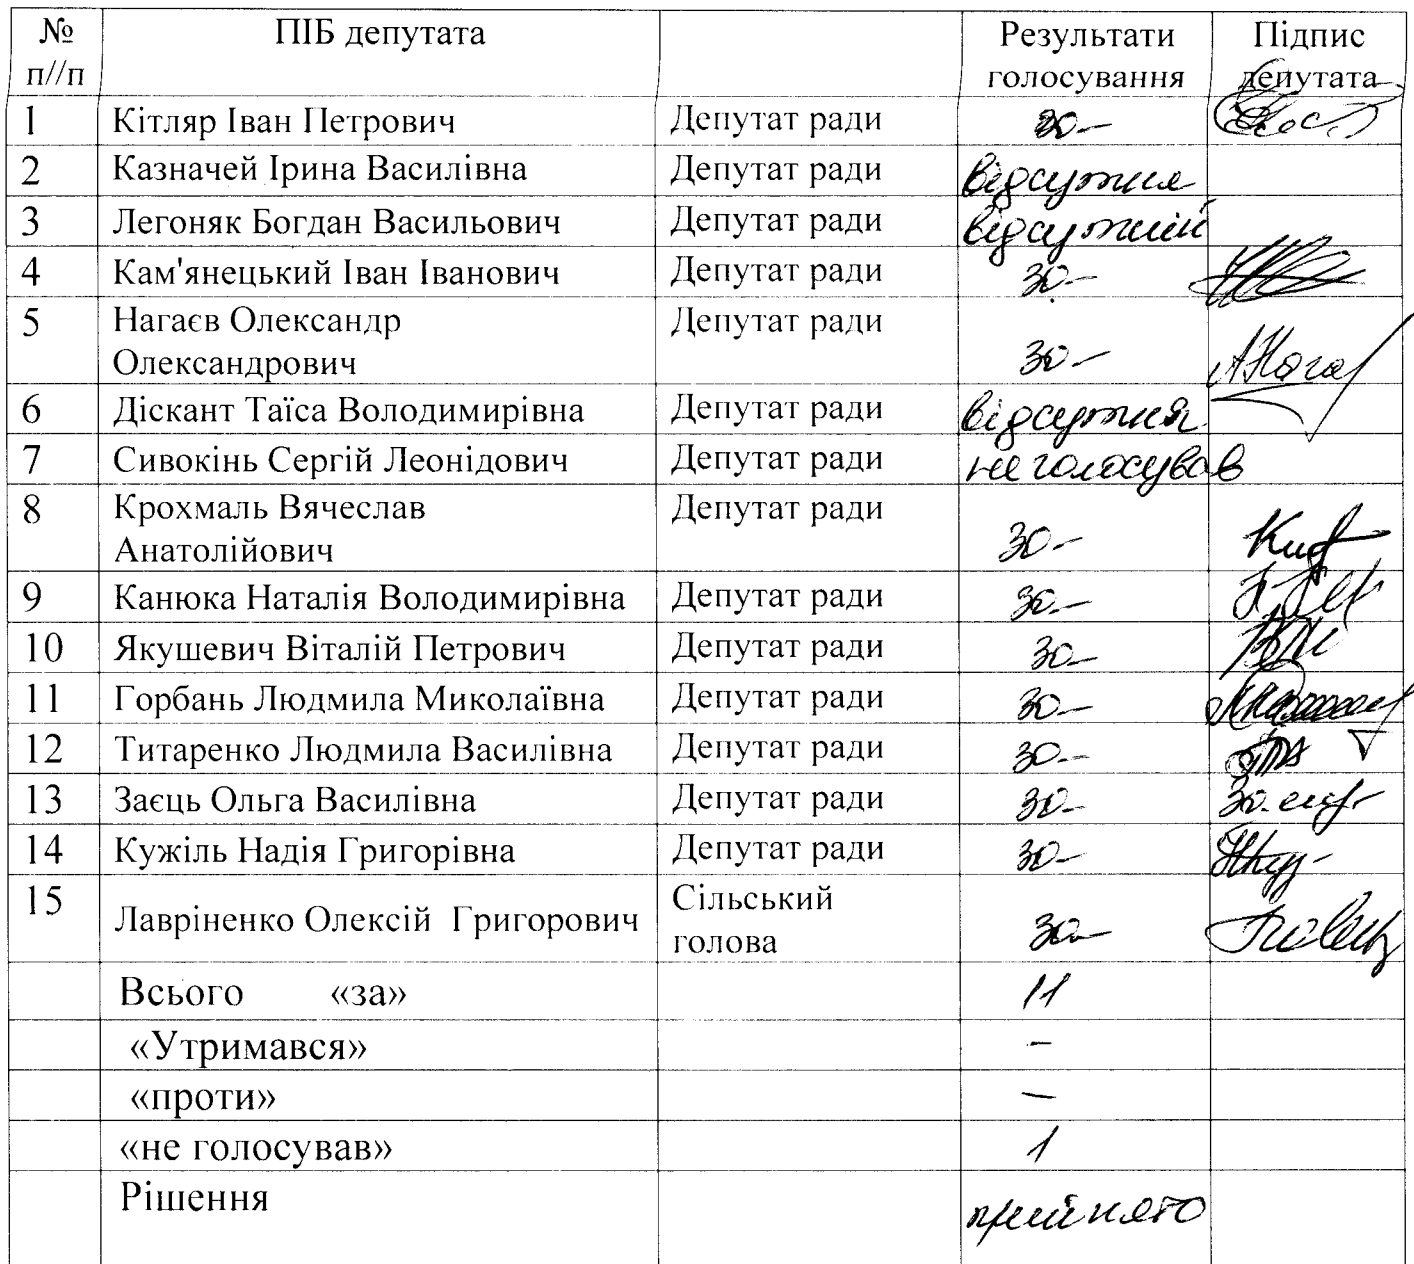 № п//п ПІБ депутата Результати голосування Підпис депутата
1 Кітляр Іван Петрович Депутат ради за
2 Казначей Ірина Василівна Депутат ради відсутня
3 Легоняк Богдан Васильович Депутат ради відсутній
4 Кам'янецький Іван Іванович Депутат ради за
5 Нагаєв Олександр Олександрович Депутат ради за
6 Діскант Таїса Володимирівна Депутат ради відсутня
7 Сивокінь Сергій Леонідович Депутат ради не голосував
8 Крохмаль Вячеслав Анатолійович Депутат ради за
9 Канюка Наталія Володимирівна Депутат ради за
10 Якушевич Віталій Петрович Депутат ради за
11 Горбань Людмила Миколаївна Депутат ради за
12 Титаренко Людмила Василівна Депутат ради за
13 Заєць Ольга Василівна Депутат ради за
14 Кужіль Надія Григорівна Депутат ради за
15 Лавріненко Олексій Григорович Сільський голова за
Всього «за» 11
«Утримався» -
«проти» -
«не голосував» 1
Рішення прийнято